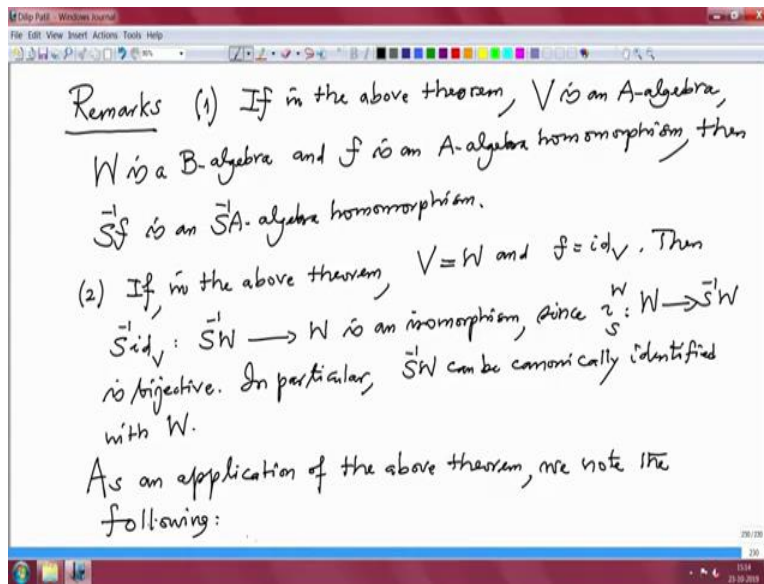 Dilip Patil - Windows Journal
File Edit View Insert Actions Tools Help
Remarks (1) If in the above theorem, V is an A-algebra,
W is a B-algebra and f is an A-algebra homomorphism, then
S⁻¹f is an S⁻¹A-algebra homomorphism.
(2) If, in the above theorem, V = W and f = id_V. Then
S⁻¹id_V : S⁻¹W ⟶ W is an isomorphism, since ι_S^W : W ⟶ S⁻¹W
is bijective. In particular, S⁻¹W can be canonically identified
with W.
As an application of the above theorem, we note the
following:
230/230
230
15:14
23-10-2019